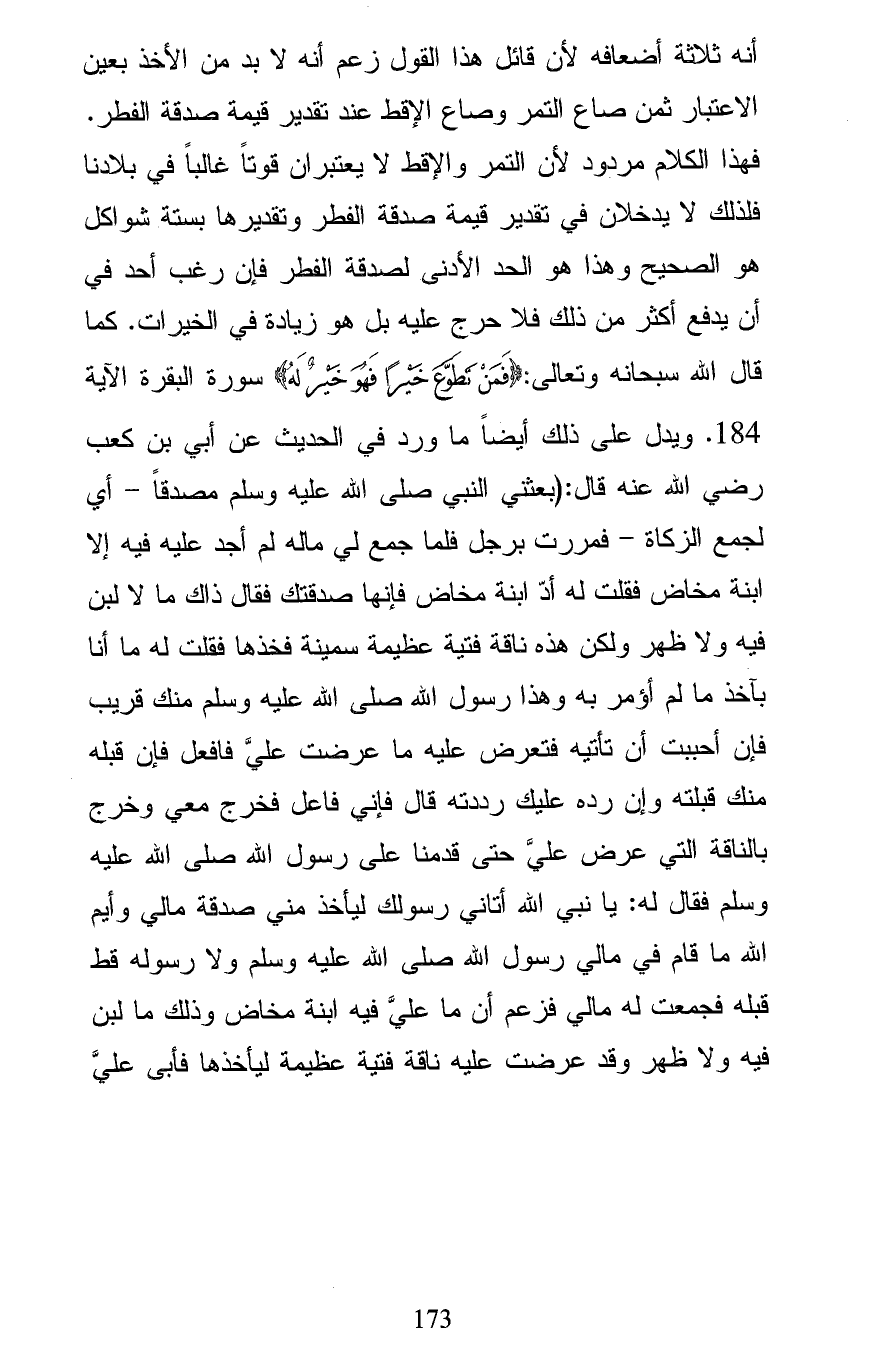 أنه ثلاثة أضعافه لأن قائل هذا القول زعم أنه لا بد من الأخذ بعين
الاعتبار ثمن صاع التمر وصاع الإقط عند تقدير قيمة صدقة الفطر.
فهذا الكلام مردود لأن التمر والإقط لا يعتبران قوتاً غالباً في بلادنا
فلذلك لا يدخلان في تقدير قيمة صدقة الفطر وتقديرها بستة شواكل
هو الصحيح وهذا هو الحد الأدنى لصدقة الفطر فإن رغب أحد في
أن يدفع أكثر من ذلك فلا حرج عليه بل هو زيادة في الخيرات. كما
قال الله سبحانه وتعالى:﴿فَمَنْ تَطَوَّعَ خَيْرًا فَهُوَ خَيْرٌ لَهُ﴾ سورة البقرة الآية
184. ويدل على ذلك أيضاً ما ورد في الحديث عن أبي بن كعب
رضي الله عنه قال:(بعثني النبي صلى الله عليه وسلم مصدقاً – أي
لجمع الزكاة – فمررت برجل فلما جمع لي ماله لم أجد عليه فيه إلا
ابنة مخاض فقلت له أدّ ابنة مخاض فإنها صدقتك فقال ذاك ما لا لبن
فيه ولا ظهر ولكن هذه ناقة فتية عظيمة سمينة فخذها فقلت له ما أنا
بآخذ ما لم أؤمر به وهذا رسول الله صلى الله عليه وسلم منك قريب
فإن أحببت أن تأتيه فتعرض عليه ما عرضت عليَّ فافعل فإن قبله
منك قبلته وإن رده عليك رددته قال فإني فاعل فخرج معي وخرج
بالناقة التي عرض عليَّ حتى قدمنا على رسول الله صلى الله عليه
وسلم فقال له: يا نبي الله أتاني رسولك ليأخذ مني صدقة مالي وأيم
الله ما قام في مالي رسول الله صلى الله عليه وسلم ولا رسوله قط
قبله فجمعت له مالي فزعم أن ما عليَّ فيه ابنة مخاض وذلك ما لبن
فيه ولا ظهر وقد عرضت عليه ناقة فتية عظيمة ليأخذها فأبى عليَّ
173